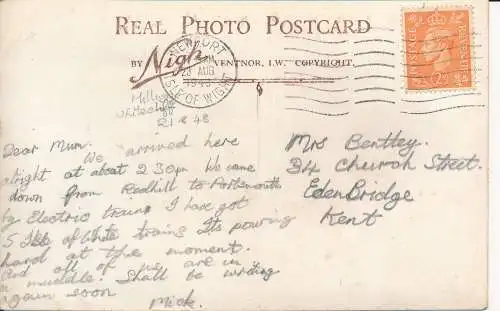 REAL PHOTO POSTCARD
BY Nigh VENTNOR, I.W. COPYRIGHT.
NEWPORT
23 AUG
ISLE OF WIGHT
POSTAGE REVENUE
21 8 48
Dear Mum.
We arrived here
alright at about 2 30pm We came
down from Redhill to Portsmouth
by Electric train, I have got
5 Isle of White trains Its pouring
hard at the moment.
And all of us are in
a muddle. Shall be writing
again soon
Mick.
Mrs Benttey.
34 Church Street.
EdenBridge
Kent